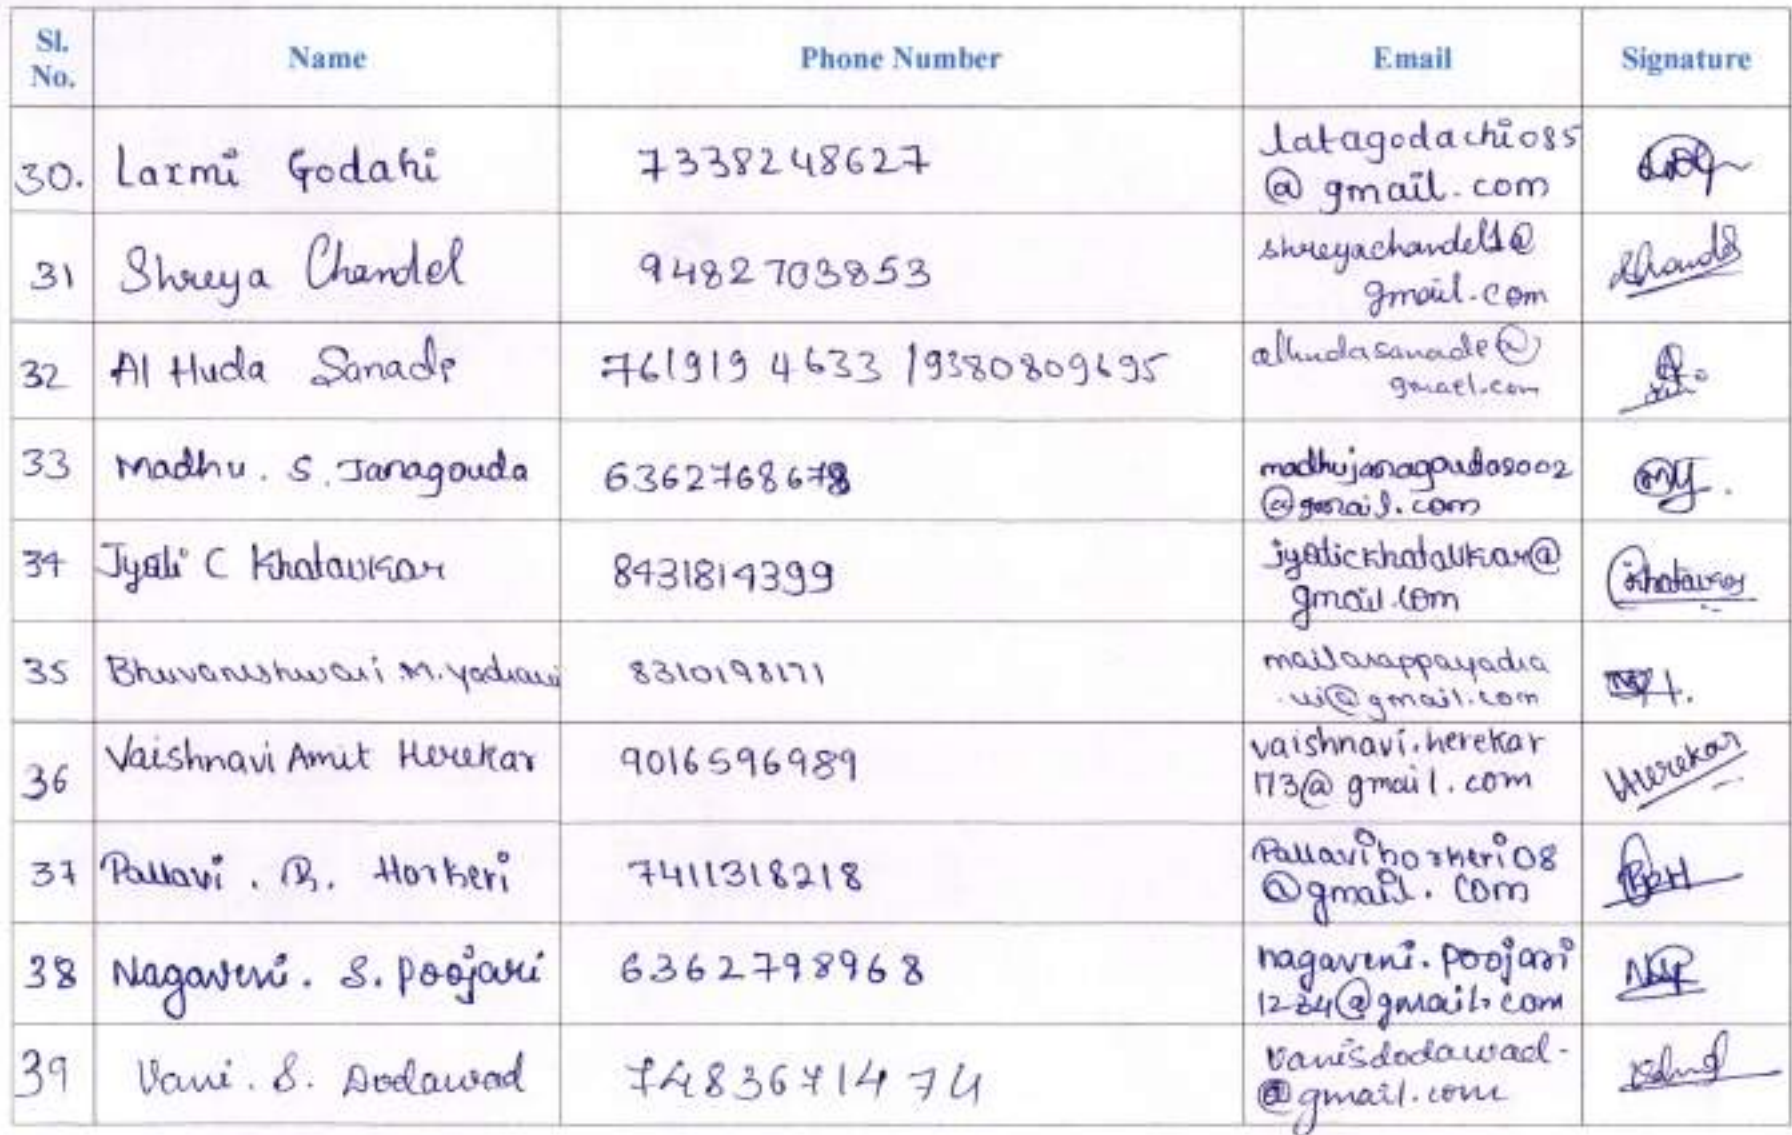 Sl. No. Name Phone Number Email Signature
30. Laxmi Godahi 7338248627 latagodachi085
@gmail.com
31 Shreya Chandel 9482703853 shreyachandel1@
gmail.com
32 Al Huda Sanade 7619194633 /9380809695 alhudasanade@
gmael.com
33 Madhu. S. Janagouda 6362768678 madhujanagouda2002
@gmail.com
34 Jyoti C Khatavkar 8431814399 jyotickhatavkar@
gmail.com
35 Bhuvaneshwari.M.yadravi 8310198171 mailarappayadra
vi@gmail.com
36 Vaishnavi Amit Herekar 9016596989 vaishnavi.herekar
173@gmail.com Herekar
37 Pallavi. B. Horkeri 7411318218 Pallavihorkeri08
@gmail.com BPH
38 Nagaveni. S. Poojari 6362798968 nagaveni.poojari
1234@gmail.com
39 Vani. S. Dodawad 7483671474 vanisdodawad-
@gmail.com